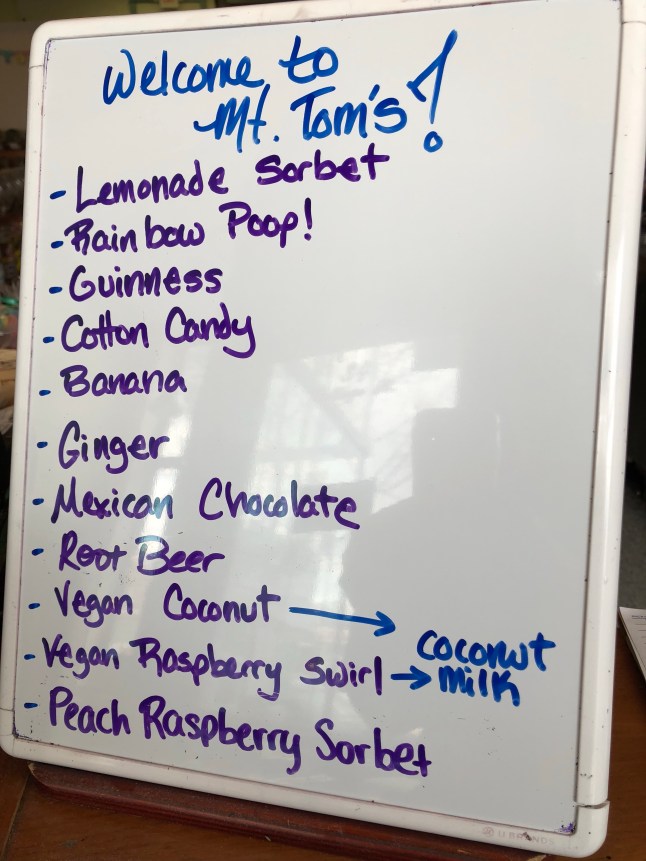 Welcome to
Mt. Tom's!
- Lemonade Sorbet
- Rainbow Poop!
- Guinness
- Cotton Candy
- Banana
- Ginger
- Mexican Chocolate
- Root Beer
- Vegan Coconut →
coconut
- Vegan Raspberry Swirl → milk
- Peach Raspberry Sorbet
U BRANDS